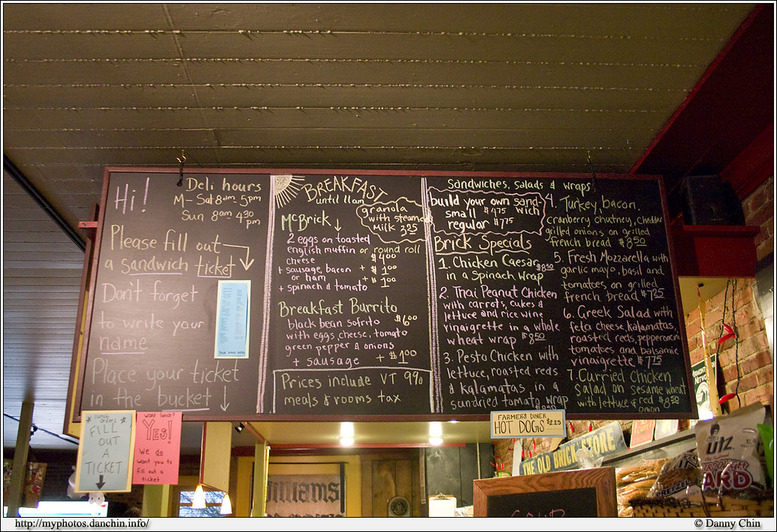 Hi!
Deli hours
M-Sat 8am 5pm
Sun 8am 4:30 pm
Please fill out
a sandwich ticket
Don't forget
to write your
name
Place your ticket
in the bucket
BREAKFAST
until 11am
granola
with steamed
milk 3.25
McBrick
2 eggs on toasted
english muffin or round roll
cheese $4.00
+ sausage, bacon + $1.00
or ham
+ spinach & tomato + $1.00
Breakfast Burrito
black bean sofrito $6.00
with eggs, cheese, tomato
green pepper & onions
+ sausage + $1.00
Prices include VT 9%
meals & rooms tax
Sandwiches, salads & wraps
build your own sand-
small $4.75 wich
regular $7.75
Brick Specials
1. Chicken Caesar $8.50
in a Spinach wrap
2. Thai Peanut Chicken
with carrots, cukes &
lettuce and rice wine
vinaigrette in a whole
wheat wrap $8.50
3. Pesto Chicken with
lettuce, roasted reds
& kalamatas, in a
sundried tomato wrap
4. Turkey bacon,
cranberry chutney, cheddar
grilled onions on grilled
french bread $8.50
5. Fresh Mozzarella with
garlic mayo, basil and
tomatoes, on grilled
french bread $7.75
6. Greek Salad with
feta cheese, kalamatas,
roasted reds, pepperoncini
tomatoes and balsamic
vinaigrette $7.75
7. Curried Chicken
salad on sesame wheat
with lettuce & red onion $8.50
FILL
OUT A
TICKET
YES!
we do
want you to
fill out a
ticket
FARMERS DINER
HOT DOGS $2.25
THE OLD BRICK STORE
Williams
UTZ
SOUP
http://myphotos.danchin.info/
© Danny Chin